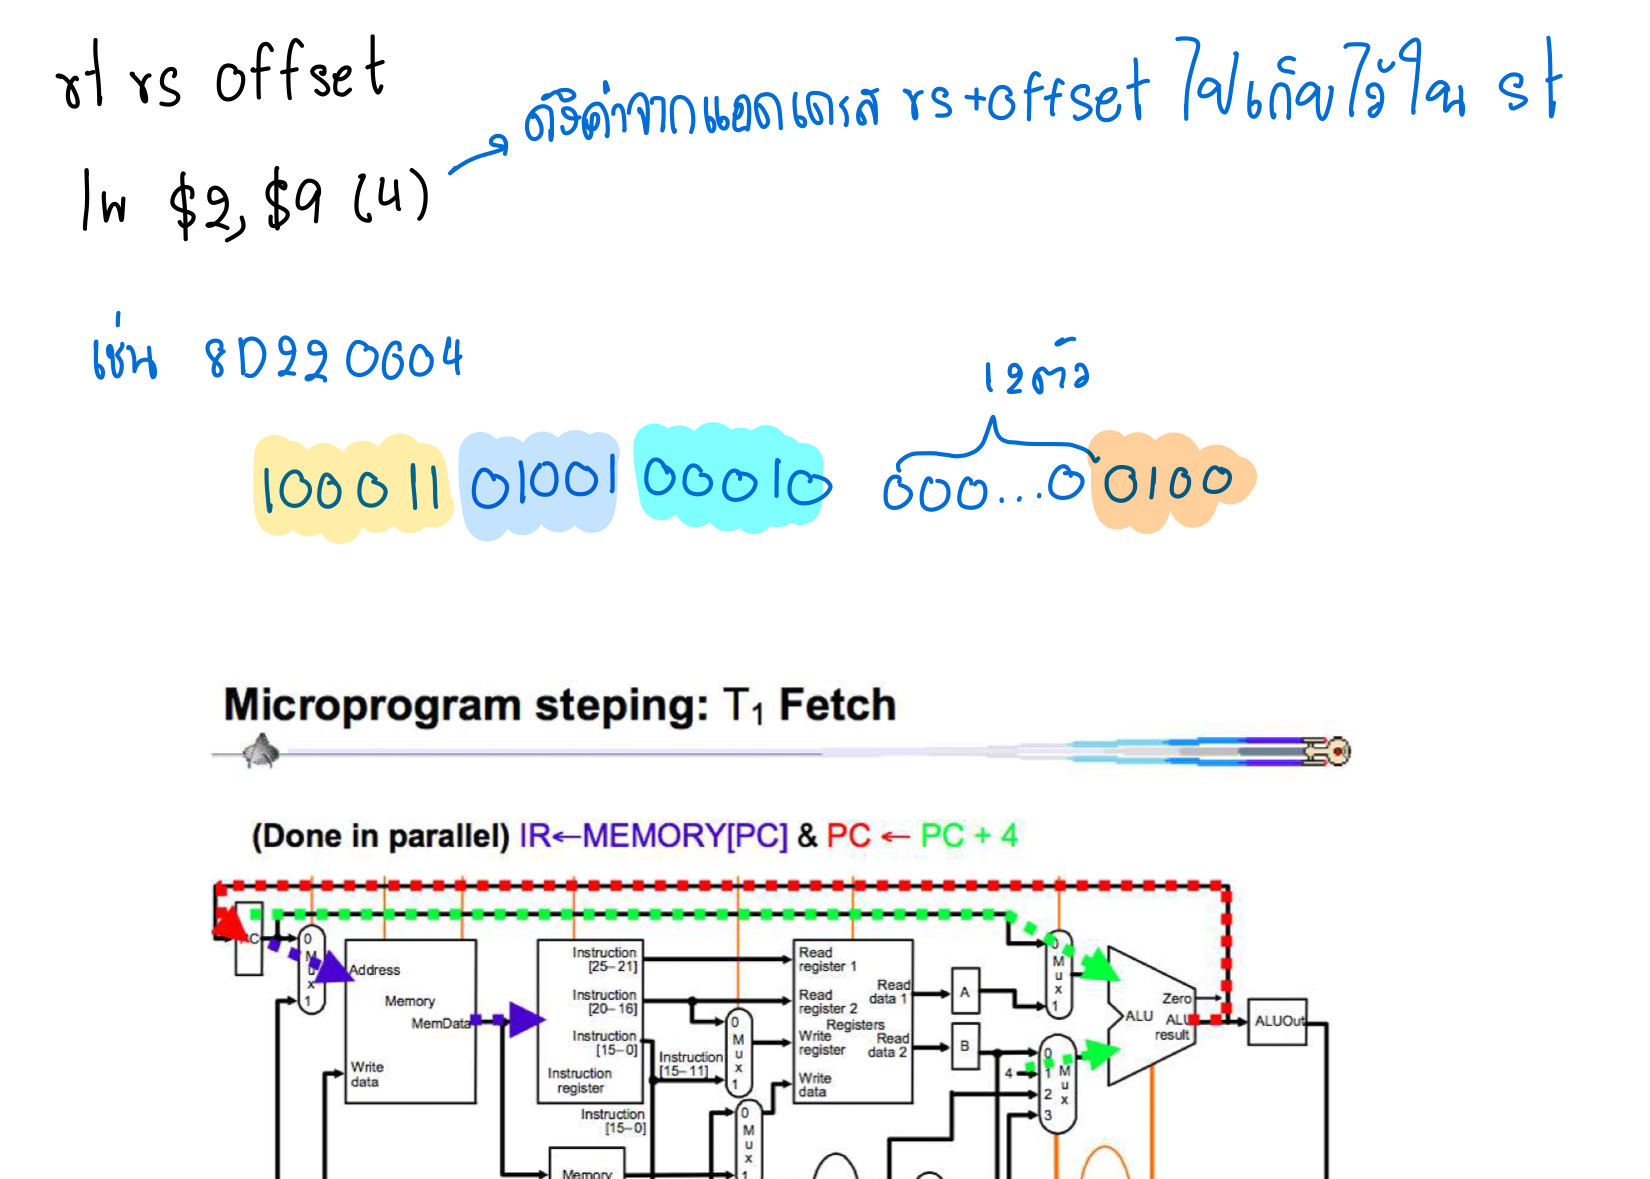 rt rs offset
ดึงค่าจากแอดเดรส rs+offset ไปเก็บไว้ใน st
lw $2, $9 (4)
เช่น 8D220004
12ตัว
100011 01001 00010 000...0 0100
Microprogram steping: T1 Fetch
(Done in parallel) IR←MEMORY[PC] & PC ← PC + 4
PC
0
M
u
x
1
Address
Memory
MemData
Write
data
Instruction
[25–21]
Instruction
[20–16]
Instruction
[15–0]
Instruction
register
Instruction
[15–11]
Instruction
[15–0]
0
M
u
x
1
0
M
u
x
1
Memory
Read
register 1
Read
register 2
Registers
Write
register
Write
data
Read
data 1
Read
data 2
A
B
4
0
M
u
x
1
0
1
2
3
M
u
x
Zero
ALU
ALU
result
ALUOut